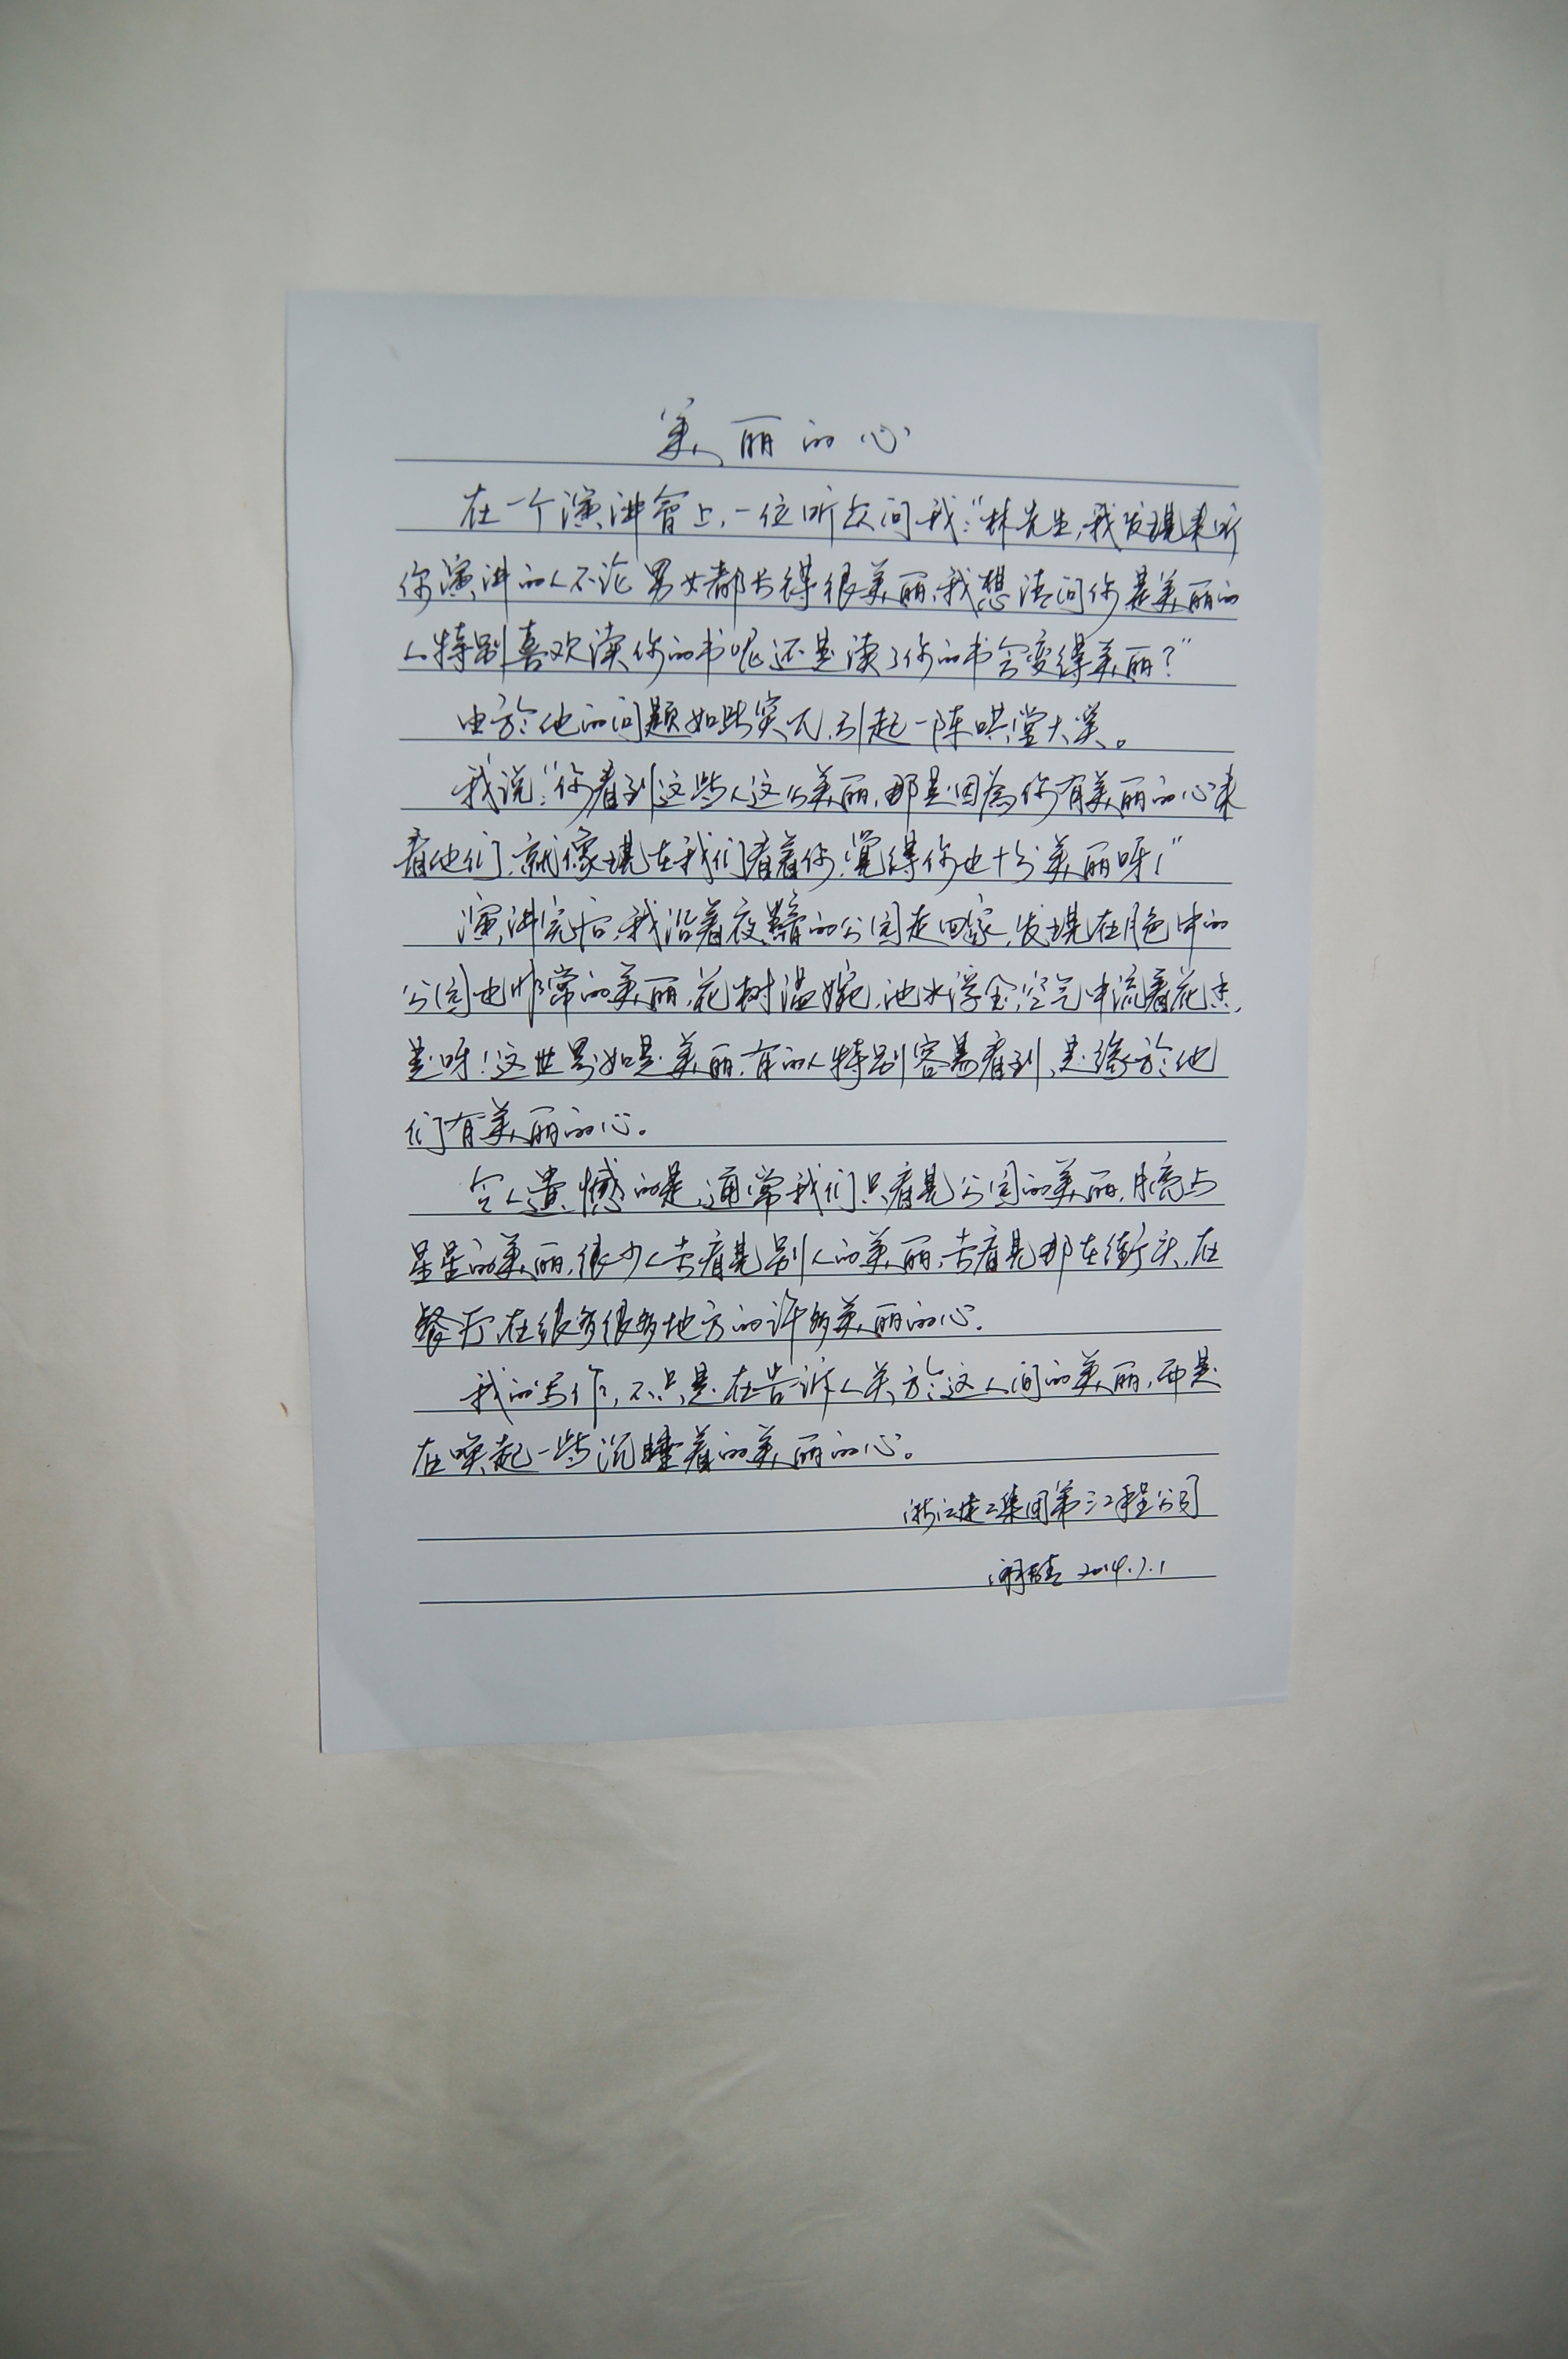 美丽的心
在一个演讲會上,一位听众问我:“林先生,我发现来听
你演讲的人不论男女都长得很美丽,我想请问你是美丽的
人特别喜欢读你的书呢还是读了你的书会变得美丽?”
由於他的问题如此突兀,引起一阵哄堂大笑。
我说:“你看到这些人这么美丽,那是因為你有美丽的心来
看他们,就像现在我们看着你,覺得你也十分美丽呀!”
演讲完后,我沿着夜黯的公园走回家,发现在月色中的
公园也非常的美丽,花树温婉,池水浮金,空气中流着花香,
是呀!这世界如是美丽,有的人特别容易看到,是缘於他
们有美丽的心。
令人遺憾的是,通常我们只看見公园的美丽,月亮与
星星的美丽,很少人去看見别人的美丽,去看見那在街头,在
餐厅在很多很多地方的许多美丽的心。
我的写作,不只是在告诉人关於这人间的美丽,而是
在唤起一些沉睡着的美丽的心。
浙江建工集团第三工程公司
2014.7.1